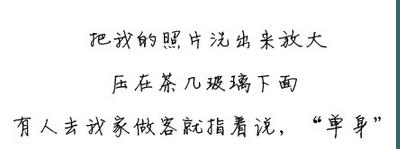 把我的照片洗出来放大
压在茶几玻璃下面
有人去我家做客就指着说，“单身”